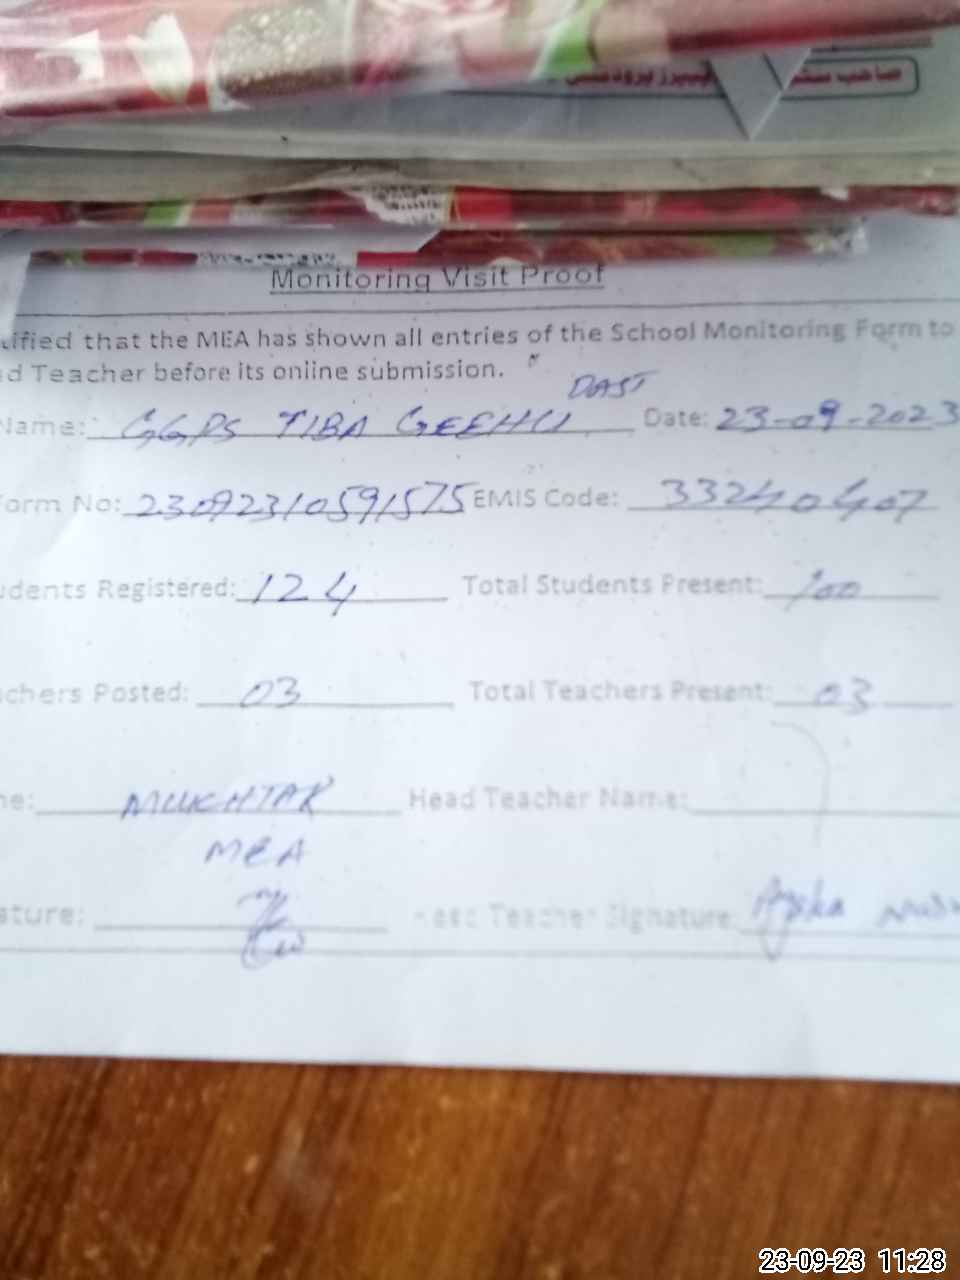 صاحب ستھر
پیپرز پروڈکٹس
Monitoring Visit Proof
ified that the MEA has shown all entries of the School Monitoring Form to
d Teacher before its online submission.
DAST
Name: GGPS TIBA GEEHU Date: 23-09-2023
orm No: 23092310591575 EMIS Code: 33240407
dents Registered: 124 Total Students Present: 100
chers Posted: 03 Total Teachers Present: 03
ne: MUKHTAR Head Teacher Name:
MEA
ature: Head Teacher Signature:
23-09-23 11:28